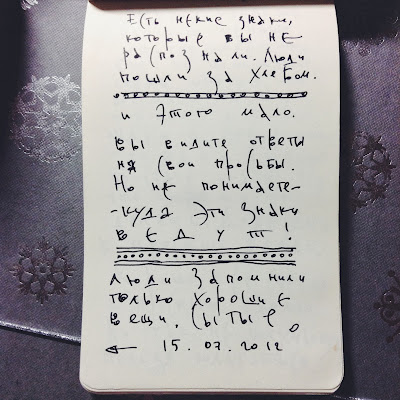 Есть некие знаки,
которые вы не
распознали. Люди
пошли за хлебом.
и этого мало.
вы видите ответы
на свои просьбы.
Но не понимаете-
-куда эти знаки
ведут!
Люди запомнили
только хорошие
вещи, сытые.
← 15.07.2012